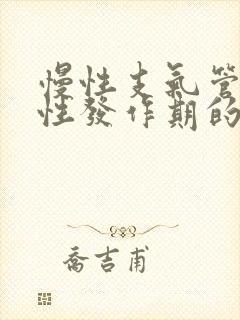 慢性支氣管
性發作期的
喬吉甫